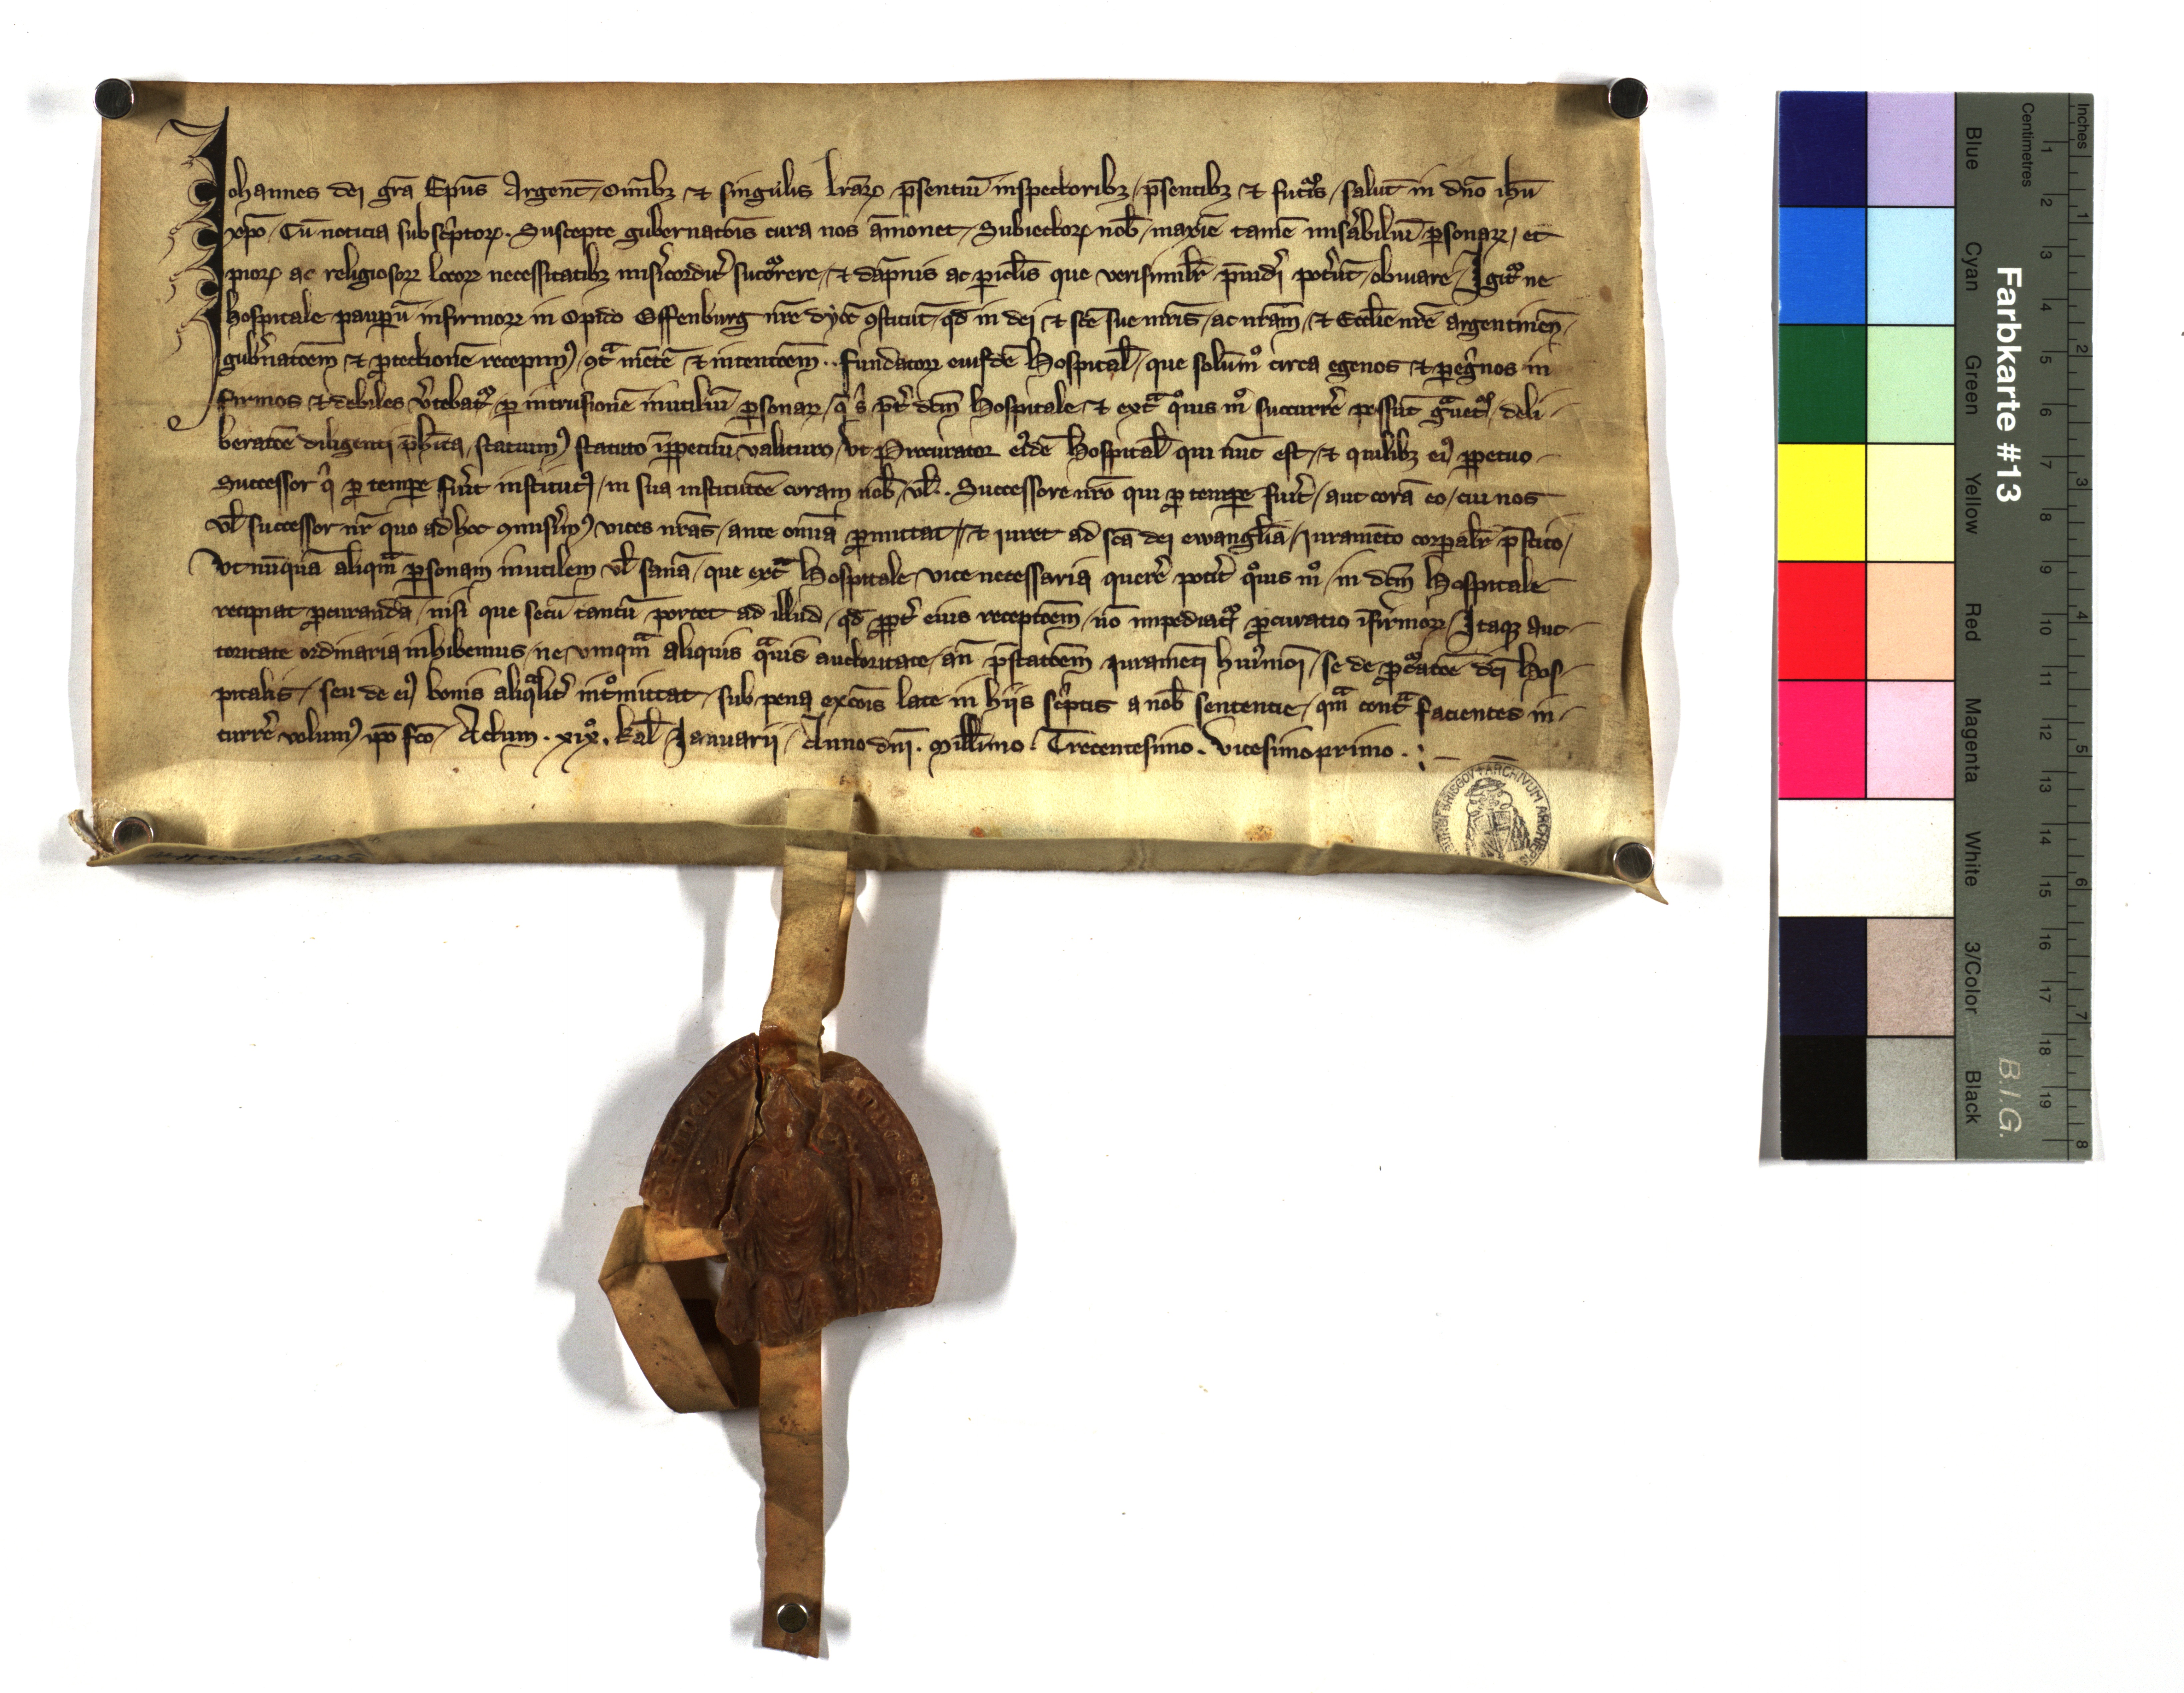 Johannes dei gr̄a Ep̄us Argent̄ . Omībꝫ et singulis lr̄arꝝ p̄sentiū inspectoribꝫ / p̄sentibꝫ et futuris / salut̄ in dn̄o ih̄u
xp̄o . Cū noticia subscͥptorꝝ . Suscepte gubernatōis cura nos āmonet / Subiectorꝝ nob̄ / maxīe tamē misͣabiliū ꝑsonarꝝ / et
piorꝝ ac religiosorꝝ locorꝝ necessitatibꝫ misͥcordit̾ succurrere / et dāpnis ac ꝑicl̄is que verisimilr̄ p̄uideri potͥūt / obuiare / Igitᷣ ne
hospitale paupeꝝ infirmorꝝ in Opido Offenburg nr̄e dyoc̄ ꝯstitut̄ / qd̄ in dei et sc̄e sue mr̄is / ac nr̄am / et Eccl̄ie nr̄e argentineñ /
gub̾natōem et ꝓtectionē recepimꝰ / ꝯtͣ mētē et intentōem . . fundatorꝝ eiusdē Hospital̄ / que solūmͦ circa egenos et ꝑegͥnos in
firmos et debiles v̾tebatᷣ / ꝑ intrusionē inutiliū ꝑsonarꝝ / qͥ sͥ p̄t̾ dc̄m Hospitale / et extͣ qͦuis mͦ succurrē possūt gͣuetᷣ / deli-
beratōe diligenti p̄h̄ita / statuimꝰ statuto īꝑpetuū valituro / Vt Procurator eͥdē Hospital̄ qui nūc est / et quilibꝫ eiꝰ ꝑpetuo
Successor qͥ ꝓ tempe fuͥit institutꝰ / in sua institutōe coram nob̄ / vl̄ . . Successore nr̄o qui ꝓ tempe fuͥit / aut corā eo / cui nos
vl̄ successor nr̄ quo ad hoc ꝯmisͥimꝰ vices nr̄as / ante om̄ia ꝓmittat / et iuret ad sc̄a dei ewangl̄ia / iuramēto corꝑalr̄ p̄stito /
Vt nūquā aliqm̄ ꝑsonam inutilem vl̄ sanā / que extͣ Hospitale vite necessaria querē potͥit qͦuis mͦ / in dc̄m Hospitale
recipiat ꝓcurandā / nisi que secū tantū portet ad illud / qd̄ ꝓpt̾ eius receptōem / nō impediatᷣ ꝓcuratio īfirmorꝝ / Itaqꝫ auc-
toritate ordinaria inhibemus / ne vmqͣm aliquis qͣuis auctoritate / añ p̄statōem iuramēti huiͥmōi / se de ꝓcͣatōe dc̄i Hos-
pitalis / seu de eiꝰ bonis aliqͣlit̾ intͦmittat / sub pena excōis late in hiis scͥptis a nob̄ sententie / qͣm contͣ facientes in-
currē volumꝰ ip̄o fc̄o / Actum . xixͦ . kal̄ Januarij / Anno dn̄i . Mill̄imo . Trecentesimo . Vicesimoprimo . : –
ARCHIVUM ARCHIEPIS
FRIBURGI BRISGOV
Inches
Centimetres
Farbkarte #13
B.I.G.
Blue
Cyan
Green
Yellow
Red
Magenta
White
3/Color
Black
1 2 3 4 5 6 7 8 9 10 11 12 13 14 15 16 17 18 19
1 2 3 4 5 6 7 8